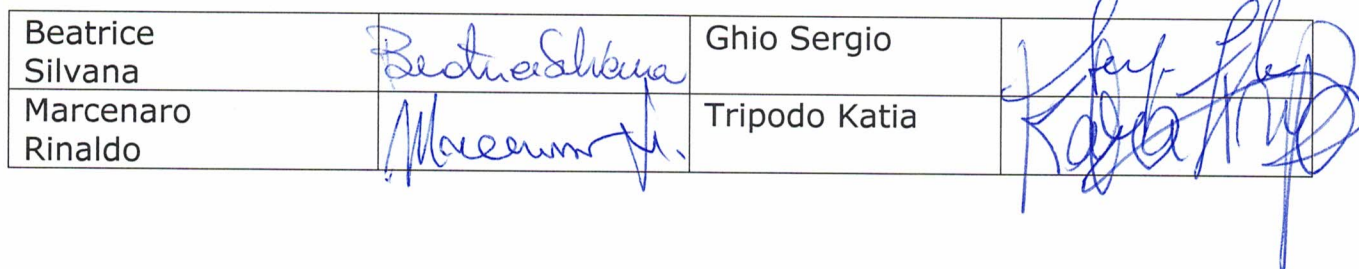 Beatrice
Silvana
Beatrice Silvana
Ghio Sergio
Marcenaro
Rinaldo
Tripodo Katia
Katia